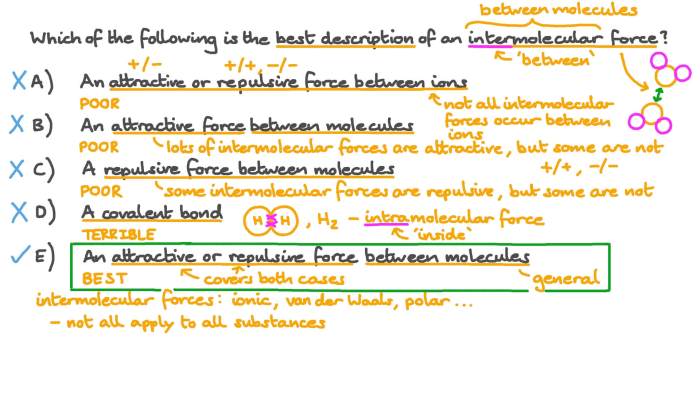 between molecules
Which of the following is the best description of an intermolecular force?
'between'
+/- +/+, -/-
A) An attractive or repulsive force between ions
POOR
not all intermolecular
forces occur between
ions
B) An attractive force between molecules
POOR lots of intermolecular forces are attractive, but some are not
+/+, -/-
C) A repulsive force between molecules
POOR some intermolecular forces are repulsive, but some are not
D) A covalent bond H H, H₂ - intramolecular force
TERRIBLE 'inside'
E) An attractive or repulsive force between molecules
BEST covers both cases general
intermolecular forces: ionic, van der Waals, polar ...
- not all apply to all substances